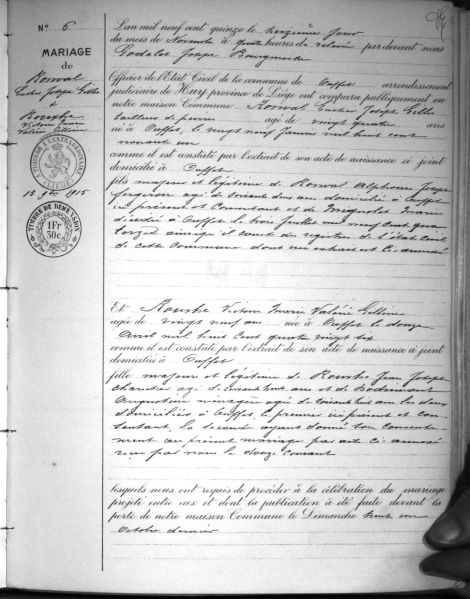 N° 6
MARIAGE
de
Ronval
Gustave Joseph Gilles
&
Rouxhe
Victoire Marie
Valérie Gilline
TIMBRE A L'EXTRAORDINAIRE
12 9bre 1915
TIMBRE DE DIMENSION
1 Fr
50c
L'an mil neuf cent quinze le treizième jour
du mois de Novembre à quatre heures de relevée par devant nous
Godelet Joseph Bourgmestre
Officier de l'Etat Civil de la commune de Ouffet arrondissement
judiciaire de Huy province de Liége ont comparu publiquement en
notre maison Commune Ronval Joseph Gilles
tailleur de pierre âgé de vingt quatre ans
né à Ouffet, le vingt neuf Janvier mil huit cent
nonante un
comme il est constaté par l'extrait de son acte de naissance ci joint
domicilié à Ouffet
fils majeur et légitime de Ronval Alphonse Joseph
âgé de soixante deux ans domicilié à Ouffet
ici présent et Consentant et de Mignolet Marie
décédée à Ouffet le trois Juillet mil neuf cent quatorze
ainsi qu'il conste du registre de l'état civil
de cette Commune dont un extrait est ci annexé
Et Rouxhe Victoire Marie Valérie Gilline
âgée de vingt neuf ans née à Ouffet le douze
Avril mil huit cent quatre vingt six
comme il est constaté par l'extrait de son acte de naissance à joint
domiciliée à Ouffet
fille majeure et légitime de Rouxhe Jean Joseph
âgé de soixante huit ans et de
Augustine ménagère âgée de soixante huit ans les deux
domiciliés à Ouffet le premier ici présent et con-
sentant, la seconde ayant donné son consente-
ment au présent mariage par acte ci annexé
reçu par nous le douze courant
lesquels nous ont requis de procéder à la célébration du mariage
projeté entre eux et dont la publication à été faite devant la
porte de notre maison Commune le Dimanche trente un
Octobre dernier